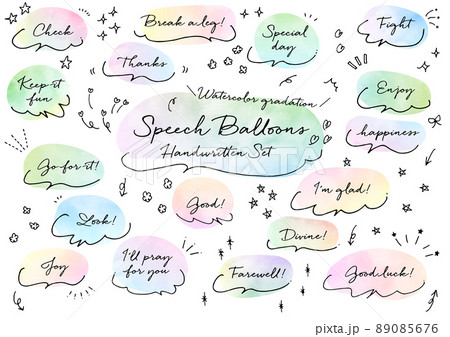 Check
Break a leg!
Special
day
Fight
Thanks
Keep it
fun
Watercolor gradation
Enjoy
Speech Balloons
Handwritten Set
happiness
Go for it!
I'm glad!
Good!
Look!
Divine!
Joy
I'll pray
for you
Farewell!
Good luck!
PIXTA
89085676